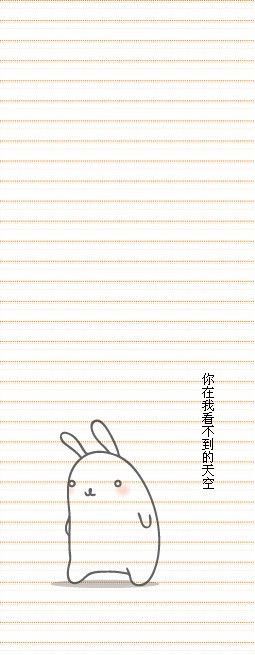 你在我看不到的天空